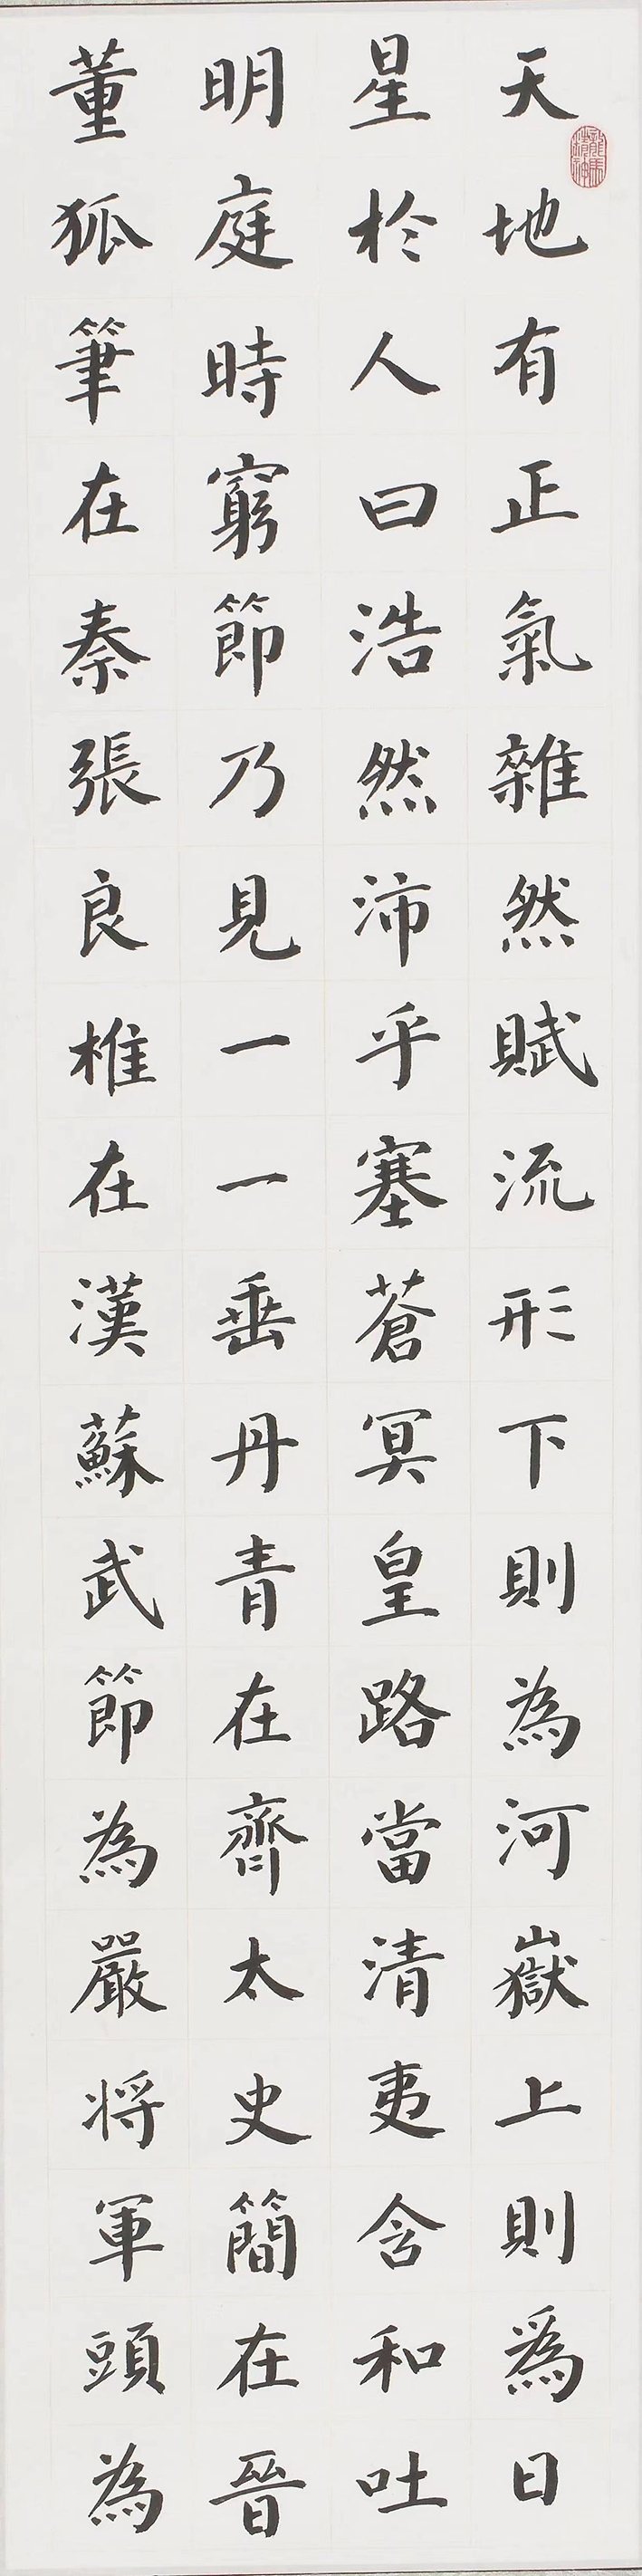 天地有正氣雜然賦流形下則為河嶽上則爲日
星於人曰浩然沛乎塞蒼冥皇路當清夷含和吐
明庭時窮節乃見一一垂丹青在齊太史簡在晉
董狐筆在秦張良椎在漢蘇武節為嚴将軍頭為
龍馬精神